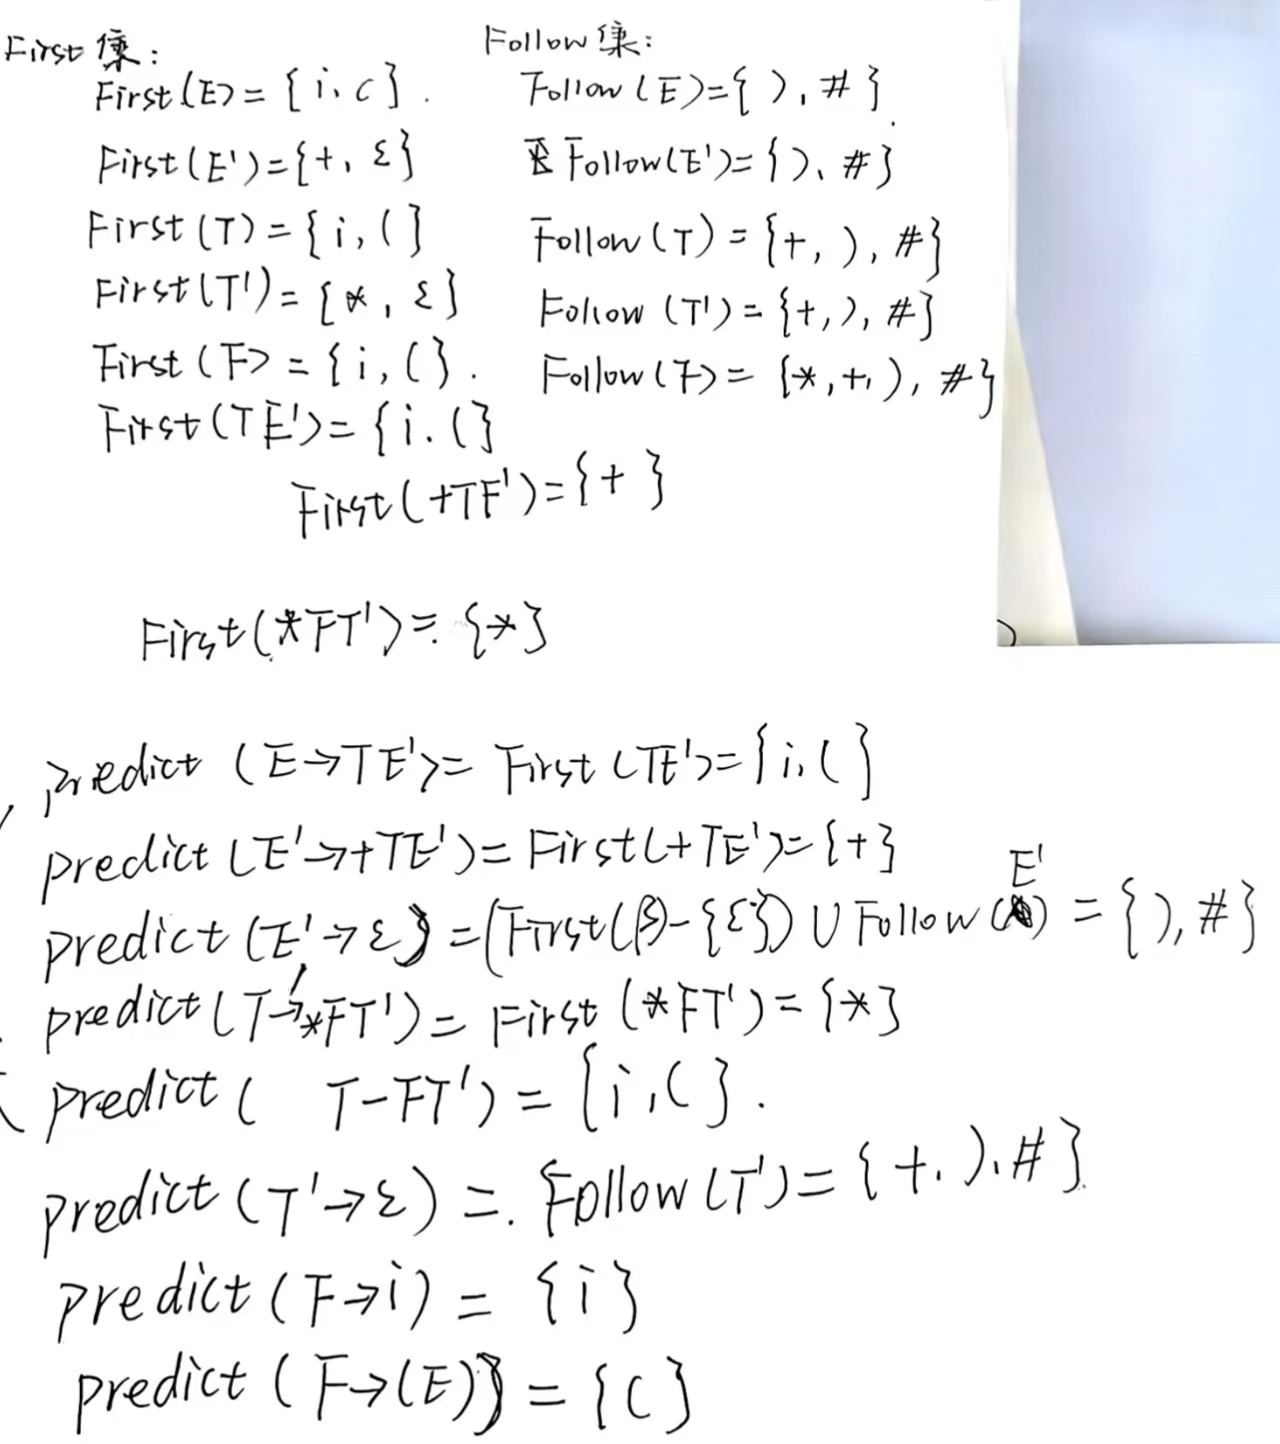 First集:
First(E)={i,c}.
First(E')={+,ε}
First(T)={i,(}
First(T')={*,ε}
First(F)={i,(}.
First(TE')={i.(}
First(+TF')={+}
First(*FT')={*}
Follow集:
Follow(E)={),#}
Follow(E')={),#}
Follow(T)={+,),#}
Follow(T')={+,),#}
Follow(F)={*,+,),#}
predict(E→TE')=First(TE')={i,(}
predict(E'→+TE')=First(+TE')={+}
predict(E'→ε)=(First(β)-{ε})∪Follow(E')={),#}
predict(T'→*FT')=First(*FT')={*}
predict( T-FT')={i,(}.
predict(T'→ε)=.Follow(T')={+,),#}
predict(F→i)={i}
predict(F→(E))={(}